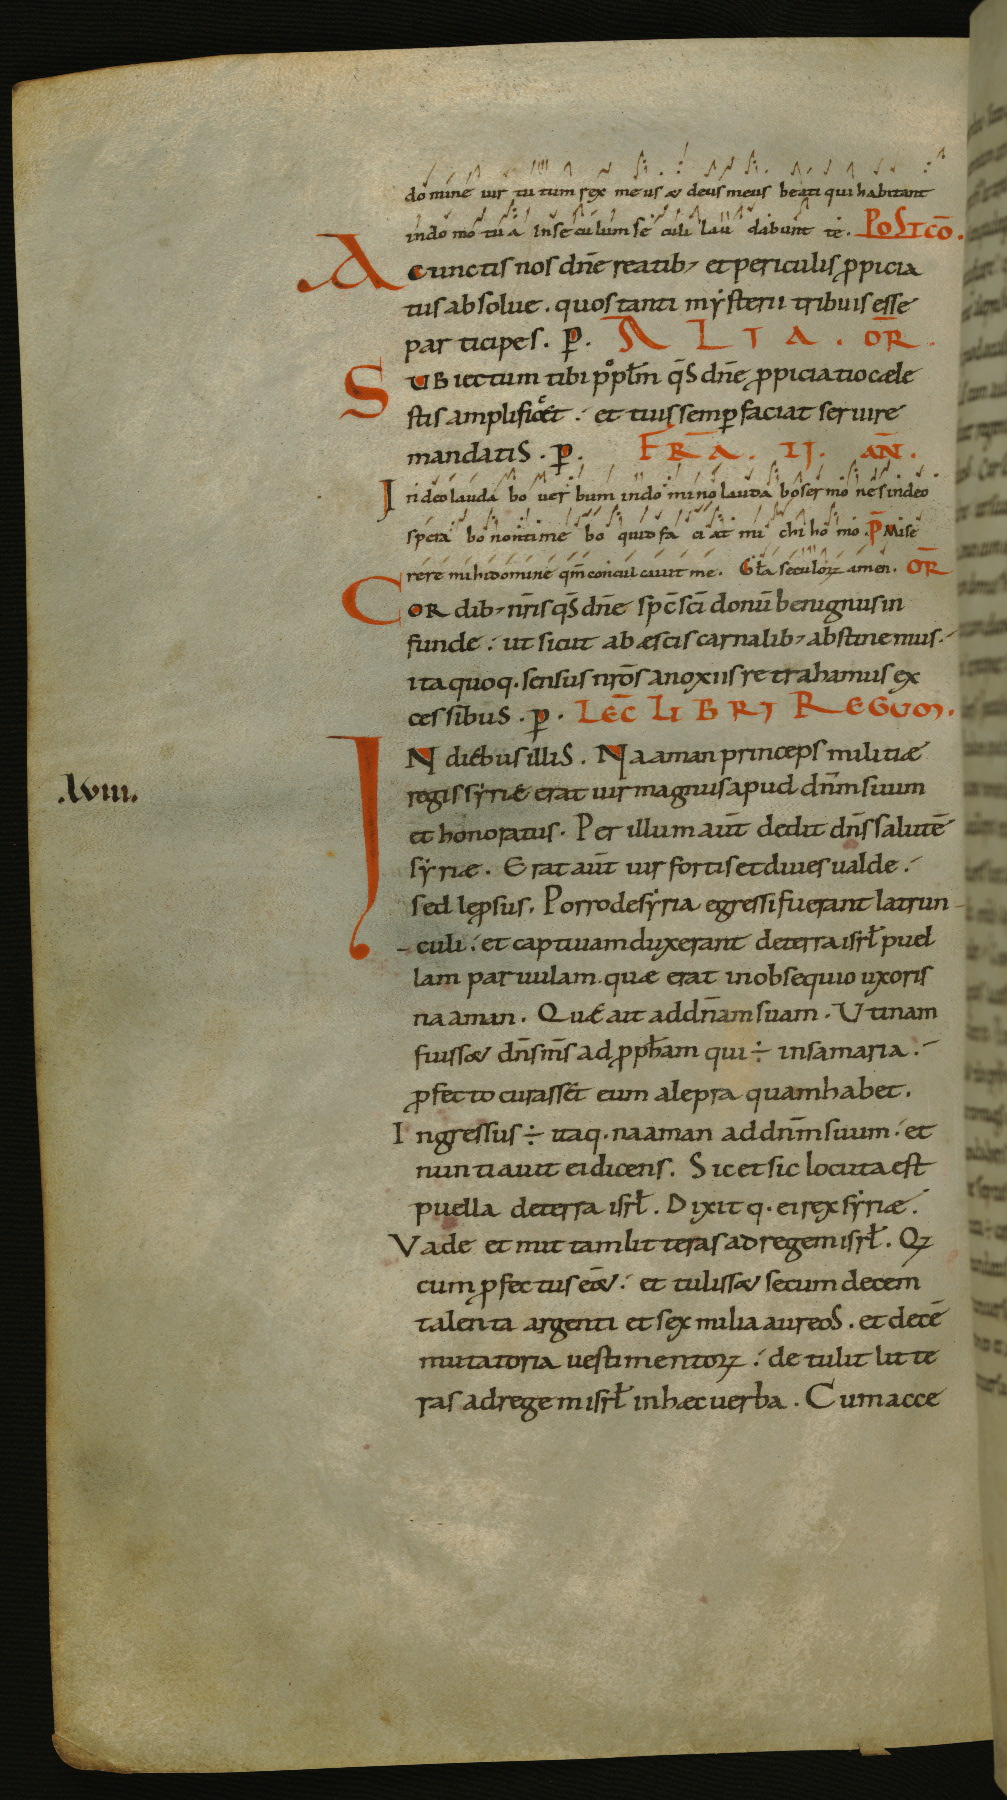 domine uirtutum rex meus & deus meus beati qui habitant
in domo tua In seculum seculi laudabunt te. POSTCO̅.
A cunctis nos dn̅e reatib; et periculis ꝓpicia
tus absolue. quos tanti mẏsterii tribuis esse
participes. p̲. ALIA. OR̅.
SUBiectum tibi pop̅lm q̅s dn̅e ꝓpiciatio cæle
stis amplificet. et tuis semꝑ faciat seruire
mandatis. p̲. FR̅A. II. AN̅.
In deo laudabo uerbum in domino laudabo sermones in deo
speraabo non timebo quid faciat mihi homo. P̅ Mise
rere mihi domine qm̅ conculcauit me. Gl̅a seculoꝝ amen. OR̅
CORdib; nr̅is q̅s dn̅e sp̅c sc̅i donu̅ benignus in
funde. ut sicut ab æscis carnalib; abstinemus.
ita quoq. sensus nr̅os a noxiis retrahamus ex
cessibus. p̲. LEC̅ LIBRI REGUM.
IN diebus illis. Naaman princeps militiæ
regis sẏrie̜ erat uir magnus apud dn̅m suum
et honoratus. Per illum aut̅ dedit dn̅s salute̅
sẏriæ. Erat aut̅ uir fortis et diues ualde.
sed leprosus. Porro de sẏria egressi fuerant latrun-
-culi. et captiuam duxerant de terra isrł puel
lam paruulam. quæ erat in obsequio uxoris
naaman. Que̜ ait ad dn̅am suam. Utinam
fuiss& dn̅s m̅s ad ꝓph̅am qui ÷ in samaria.
ꝓfecto curasset eum a lepra quam habet.
Ingressus ÷ itaq. naaman ad dn̅m suum. et
nuntiauit ei dicens. Sic et sic locuta est
puella de terra isrł. Dixitq. ei rex sẏriæ.
Vade et mittam litteras ad regem isrł. Qꝝ
.Xviii.
cum ꝓfectus e̅&. et tuliss& secum decem
talenta argenti et sex milia aureos. et dece̅
mutatoria uestimentoꝝ. detulit litte
ras ad regem isrł in hæc uerba. Cum acce